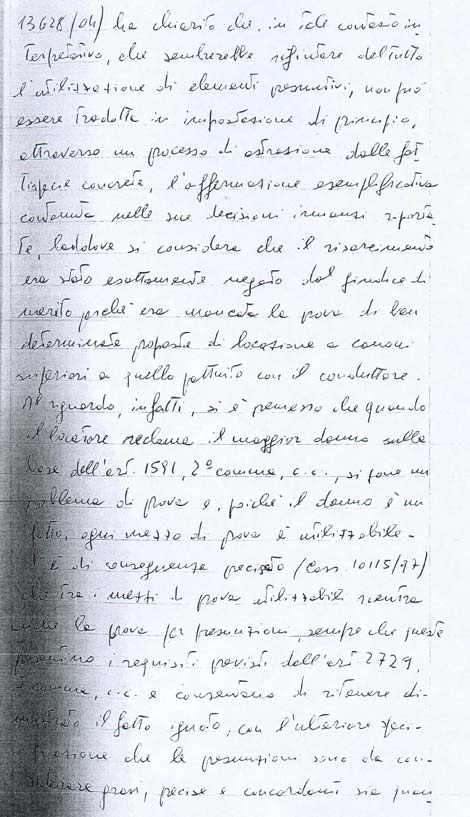 13628/04) ha chiarito che, in tale contesto in
terpretativo, che sembrerebbe rifiutare del tutto
l'utilizzazione di elementi presuntivi, non può
essere tradotta in impostazione di principio,
attraverso un processo di astrazione dalle fat
tispecie concrete, l'affermazione esemplificativa
contenuta nelle sue decisioni innanzi riporta
te, laddove si considera che il risarcimento
era stato esattamente negato dal giudice di
merito poiché era mancata la prova di ben
determinate proposte di locazione a canoni
superiori a quello pattuito con il conduttore.
Al riguardo, infatti, si è premesso che quando
il locatore reclama il maggior danno sulla
base dell'art. 1591, 2° comma, c.c., si pone un
problema di prova e, poiché il danno è un
fatto, ogni mezzo di prova è utilizzabile.
è di conseguenza precisato (Cass. 10115/97)
che tra i mezzi di prova utilizzabili rientra
anche la prova per presunzioni, sempre che queste
presentino i requisiti previsti dall'art. 2729,
comma, c.c. e consentano di ritenere di-
mostrato il fatto ignoto, con l'ulteriore speci-
ficazione che le presunzioni sono da con-
siderare gravi, precise e concordanti sia quan